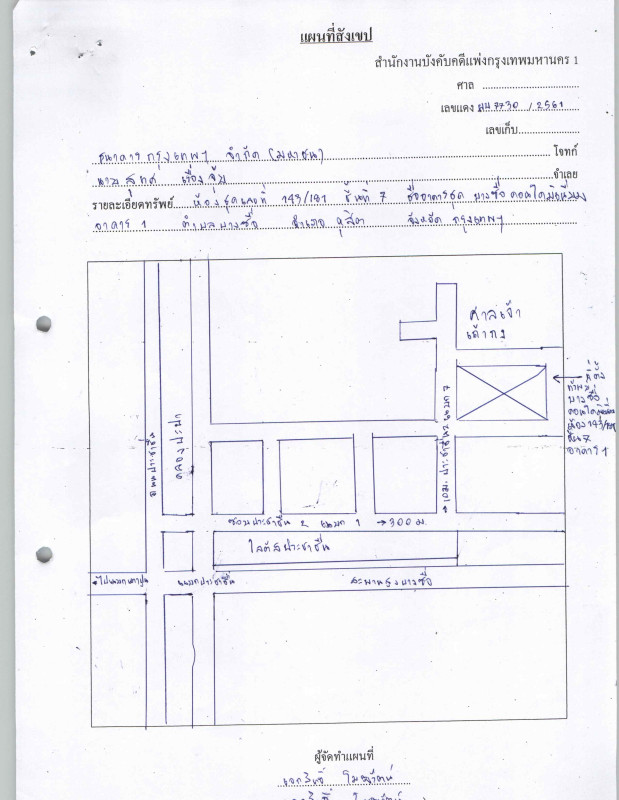 แผนที่สังเขป
สำนักงานบังคับคดีแพ่งกรุงเทพมหานคร 1
ศาล
เลขแดง ผบ 7730 / 2561
เลขเก็บ
ธนาคาร กรุงเทพฯ จำกัด (มหาชน) โจทก์
นาย เรือง จำเลย
รายละเอียดทรัพย์ ห้องชุดเลขที่ 143/181 ชั้นที่ 7 ชื่ออาคารชุด บางซื่อ คอนโดมิเนียม
อาคาร 1 ตำบล บางซื่อ อำเภอ ดุสิต จังหวัด กรุงเทพฯ
ศาลเจ้า
ที่ตั้ง
บางซื่อ
ห้อง 143/181
ชั้น 7
อาคาร 1
ถนนประชาชื่น
คลองประปา
→ 10ม. ประชาชื่น 2 แยก 7
ซอยประชาชื่น 2 แยก 1 → 300 ม.
โลตัสประชาชื่น
ไปแยกเตาปูน
แยกประชาชื่น
สะพานสูงบางซื่อ
ผู้จัดทำแผนที่